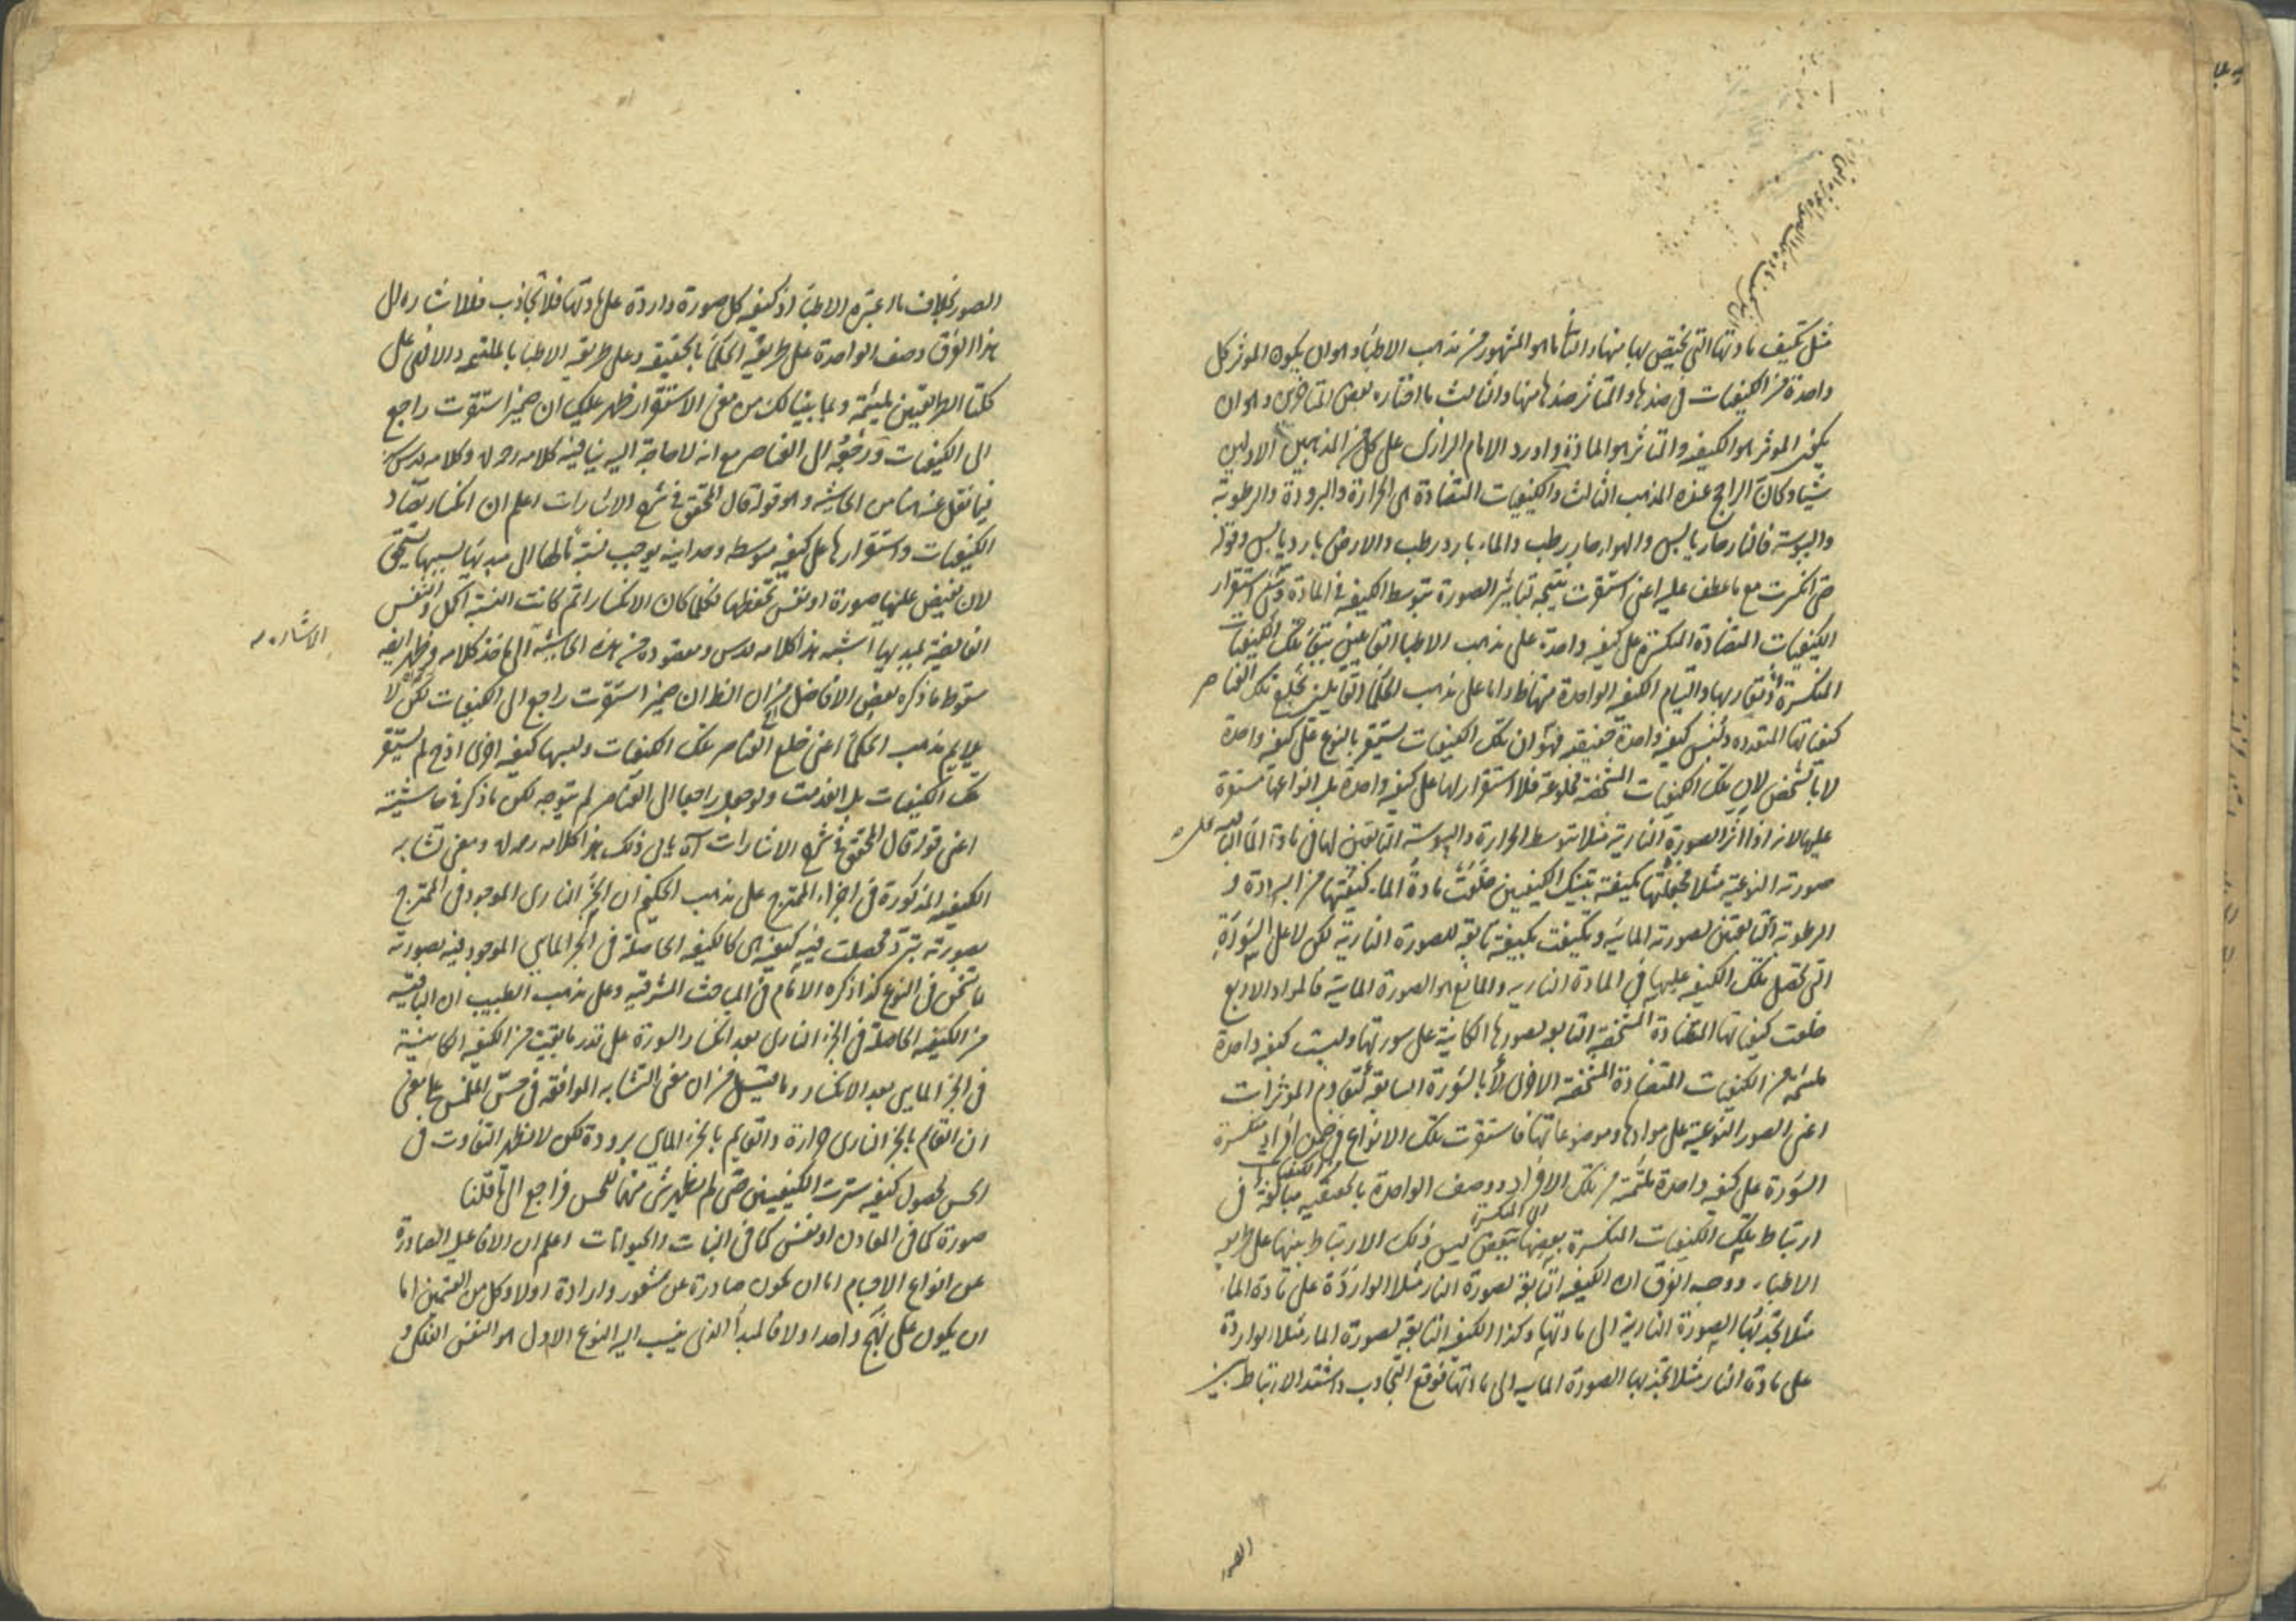 مثل تكيف مادتها التى يختص بها منها والثانى ما هو المشهور من مذهب الاطباء وهو ان يكون الموثر كل
واحدة من الكيفيات فى ضدها والمتاثر ضدها منها والثالث ما اختاره بعض المتاخرين وهو ان
يكون الموثر هو الكيفية والمتاثر هو المادة واورد الامام الرازى على كل من المذهبين الاولين
شيئا وكان الراجح عنده المذهب الثالث والكيفيات المتضادة هى الحرارة والبرودة والرطوبة
واليبوسة فالنار حار يابس والهواء حار رطب والماء بارد رطب والارض بارد يابس وقوله
حتى انكسرت مع ما عطف عليه اعنى استقرت نتيجة تماثير الصورة بتوسط الكيفية فى المادة ومعنى استقرار
الكيفيات المتضادة المنكسرة على كيفية واحدة على مذهب الاطباء القائلين ببقاء تلك الكيفيات
المنكسرة تقاربها والتيام الكيفية الواحدة منها ظ واما على مذهب الحكماء القائلين بخلع تلك العناصر
كيفياتها المتعددة ولبس كيفية واحدة حقيقة فهو ان تلك الكيفيات تستقر بالنوع على كيفية واحدة
لا بالشخص لان تلك الكيفيات المشخصة مخلوعة فلا استقرار لها على كيفية واحدة بل انواعها مستقرة
عليها لانه اذا اثر الصورة النارية مثلا بتوسط الحرارة واليبوسة التابعتين لها فى مادة الماء
صورته النوعية مثلا فجعلتها مكيفة بتينك الكيفيتين خلعت مادة الماء كيفيتها من البرودة و
الرطوبة التابعتين لصورته المائية وتكيفت بكيفية تابعة للصورة النارية لكن لا على السورة
التى تحصل تلك الكيفية عليها فى المادة النارية والمانع هو الصورة المائية فالمواد الاربع
خلعت كيفياتها المتضادة المشخصة التابعة لصورها الكائنة على سورتها ولبست كيفية واحدة
ملتئمة من الكيفيات المتضادة المشخصة الاخرى لا بالسورة السابقة لتقاوم الموثرات
اعنى الصور النوعية على موادها وموضوعاتها فاستقرت تلك الانواع فى ضمن افراد منكسرة
السورة على كيفية واحدة ملتئمة من تلك الافراد ووصف الواحدة بالحقيقية مبالغة فى
ارتباط تلك الكيفيات المنكسرة بعضها ببعض ليس ذلك الارتباط بينها على طريقة
الاطباء ووجه الفرق ان الكيفية التابعة لصورة النار مثلا الواردة على مادة الماء
مثلا تجذبها الصورة النارية الى مادتها وكذا الكيفية التابعة لصورة الماء مثلا الواردة
على مادة النار مثلا تجذبها الصورة المائية الى مادتها فوقع التجاذب واشتد الارتباط بين
الصور
الصور بخلاف ما اعتبره الاطباء اذ كيفية كل صورة واردة على مادتها فلا تجاذب فللاشارة الى
هذا الفرق وصف الواحدة على طريقة الحكماء بالحقيقية وعلى طريقة الاطباء بالملتئمة والا فهى على
كلتا الطريقتين ملتئمة وبما بينا لك من معنى الاستقرار ظهر عليك ان ضمير استقرت راجع
الى الكيفيات ورجوعه الى العناصر مع انه لا حاجة اليه ينافيه كلامه رحمه الله وكلامه قدس سره
فيما نقل عنه من الحاشية وهو قوله قال المحقق فى شرح الاشارات اعلم ان انكسار تضاد
الكيفيات واستقرارها على كيفية متوسطة وحدانية يوجب نسبة ما لها الى مبدئها بسببها يستحق
لان يفيض عليها صورة او نفس تحفظها فكلما كان الانكسار اتم كانت النسبة اكمل والنفس
الفائضة بمبدئها اشبه هذا كلامه قدس ومقصوده من هذه الحاشية الى ماخذ كلامه وظهر ايضا
الاشارة
سقوط ما ذكره بعض الافاضل من ان الظ ان ضمير استقرت راجع الى الكيفيات لكن لا
يلايم مذهب الحكماء اعنى خلع العناصر تلك الكيفيات ولبسها كيفية اخرى اذ ح لم يستقر
تلك الكيفيات بل انعدمت ولو جعل راجعا الى العناصر لم يتوجه لكن ما ذكر فى حاشيته
اعنى قوله قال المحقق فى شرح الاشارات آه يابى ذلك هذا كلامه رحمه الله ومعنى تشابه
الكيفية المذكورة فى اجزاء الممتزج على مذهب الحكيم ان الجزء النارى الموجود فى الممتزج
بصورته تبرد فحصلت فيه كيفية هى كالكيفية الحاصلة فى الجزء المائى الموجود فيه بصورته
فى النوع كذا ذكره الامام فى المباحث المشرقية وعلى مذهب الطبيب ان الباقية
من الكيفية الحاصلة فى الجزء النارى بعد انكسار السورة على قدر ما بقيت من الكيفية الكائنة
فى الجزء المائى بعد الانكسار وما قيل من ان معنى التشابه الموافقة فى حس اللمس بمعنى
ان القائم بالجزء النارى حرارة والقايم بالجزء المائى برودة لكن لا يظهر التفاوت فى
الحس لحصول كيفية سترت الكيفيتين حتى لم يظهر شى منهما للحس فراجع الى ما قلنا
صورة كما فى المعادن او نفس كما فى النبات والحيوانات اعلم ان الافاعيل الصادرة
عن انواع الاجسام اما ان تكون صادرة عن شعور وارادة او لا وكل من القسمين اما
ان يكون على نهج واحد او لا فالمبدأ الذى ينسب اليه النوع الاول هو النفس الفلكى و